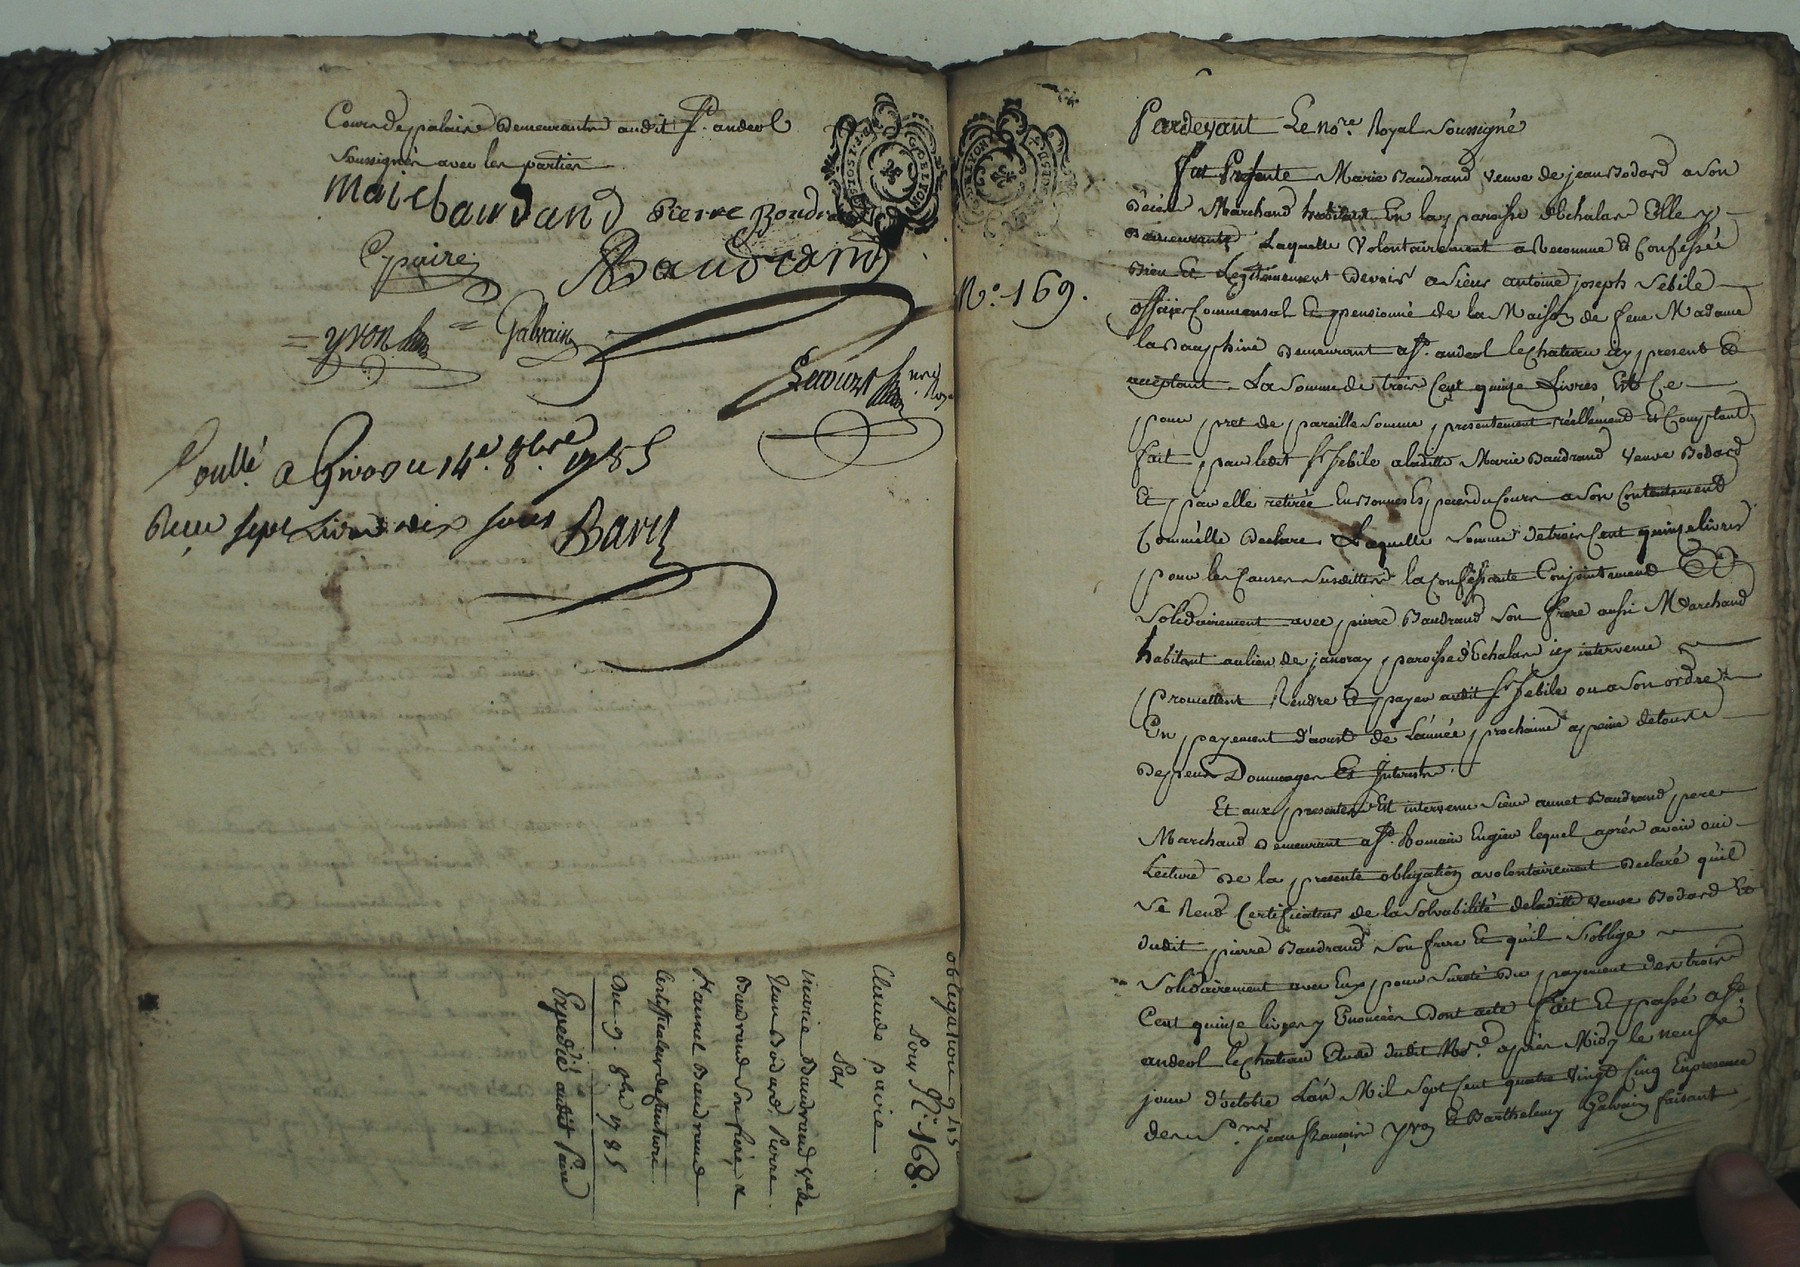 Cour de palais demeurants audit St. andeol
Soussignés avec les parties
marie baurdand Pierre Bondrand
C paire Baudrand
= yvon = Galvain
Lecourt nore Roy
Conllé. a Givors le 14e. 8bre 1785
Reçu sept Livres dix sous Bary
obligation 315
Pour N° 168.
Claude paire
Sur
marie Baudrand ve. de
Jean Bodard, Pierre
Baudrand son frère &
Sr. annet Baudrand
Certificateur de factures
Du 9. 8bre 1785
Expédié audit Paire
N°. 169.
Pardevant Le nore. Royal Soussigné
fut Presente Marie Baudrand veuve de jean Bodard a Son
Décès Marchand habitant En la paroisse d'Echalas Elle y
demeurante Laquelle volontairement a Reconnue & Confessée
Bien Et Legitimement devoir a Sieur antoine joseph Sebile
officier Commensal & pensionné de la Maison de feue Madame
la Dauphine demeurant a St. andeol le chateau icy present &
acceptant La Somme de trois Cent quinze Livres Et Ce
pour pret de pareille Somme presentement réellement Et Comptant
fait par ledit Sr Sebile a laditte Marie Baudrand veuve Bodard
Et par elle retirée En bonnes Especes du Cours a Son Contentement
Comm'elle Declare. Laquelle Somme de trois Cent quinze livres
pour les Causes Susdittes la Confessante Conjointement Et
Solidairement avec pierre Baudrand Son frere aussi Marchand
habitant au lieu de janoray paroisse d'Echalas icy intervenu
Promettent Rendre & payer audit Sr Sebile ou a Son ordre
En payement d'aoust de L'année prochaine a peine de tous
Depens Dommages Et Interests.
Et aux presentes Est intervenu Sieur annet Baudrand pere
Marchand Demeurant a St. Romain En gier lequel aprés avoir oui
Lecture De la presente obligation a volontairement Declaré qu'il
Se Rend Certificateur de la Solvabilité de laditte veuve Bodard Et
dudit pierre Baudrand Son frere Et qu'il S'oblige
Solidairement avec Eux pour Sureté Du payement des trois
Cent quinze livres y Enoncées Dont acte fait Et passé a St.
andeol le Chateau Etude dudit Nore. après Midy le neufe
jour d'octobre L'an Mil Sept Cent quatre vingt Cinq En presence
de Srs. jean françois yvon & Barthelemy Galvain faisant